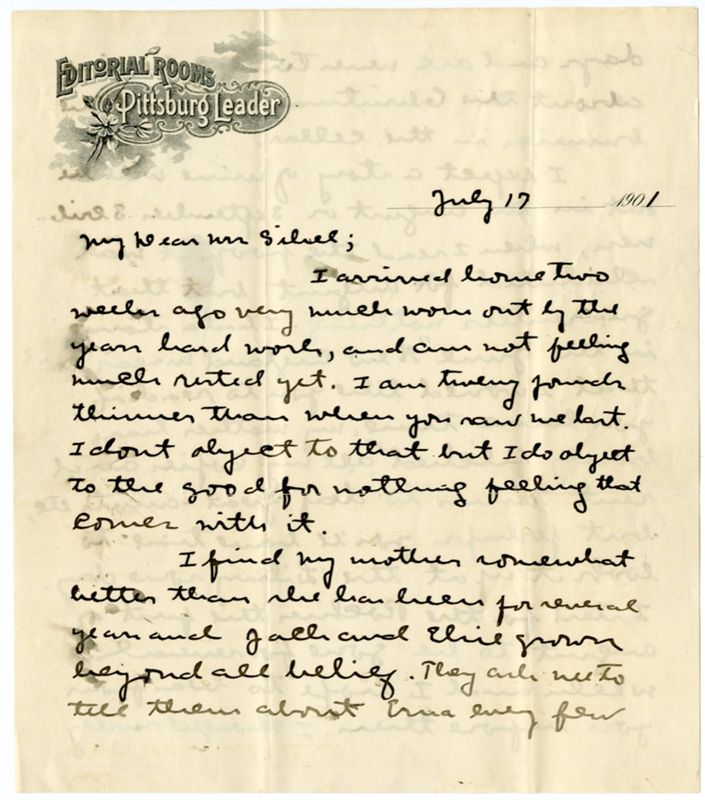 EDITORIAL ROOMS
Pittsburg Leader
July 17 1901
My Dear Mr Sibel;
I arrived home two
weeks ago very much worn out by the
years hard work, and am not feeling
much rested yet. I am tweny pounds
thinner than when you saw me last.
I dont object to that but I do object
to the good for nothing feeling that
comes with it.
I find my mother somewhat
better than she has been for several
years and Jack and Elsie grown
beyond all belief. They ask me to
tell them about Erna every few